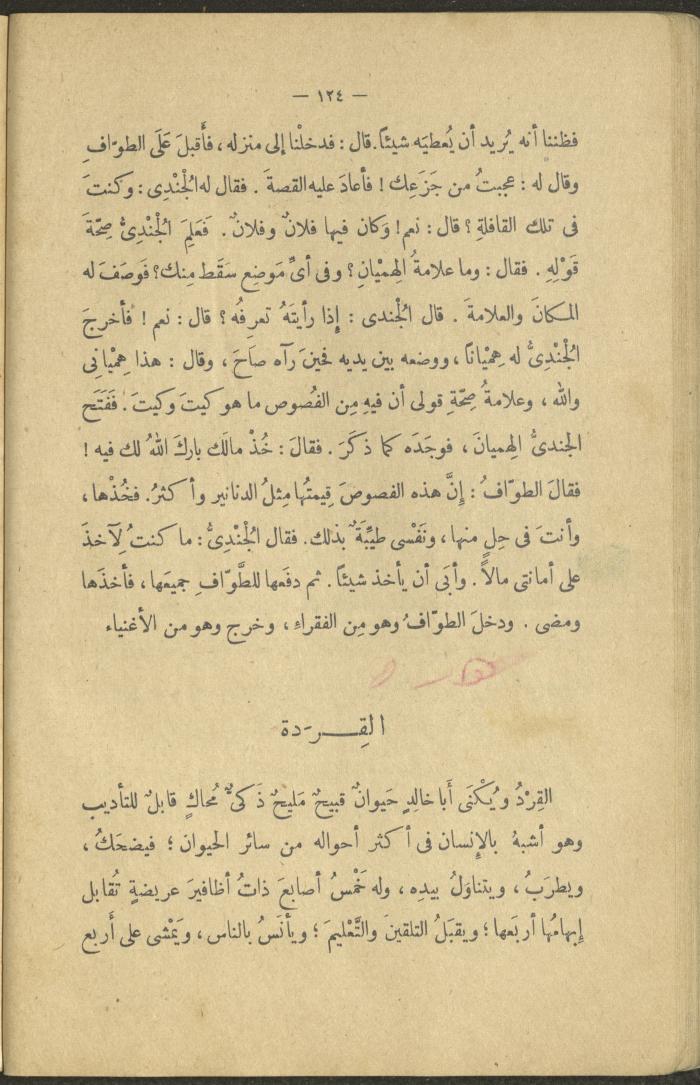 — ١٢٤ —
فظننا أنه يُريد أن يُعطيَه شيئاً. قال : فدخلْنا إلى منزله ، فأَقبلَ عَلَى الطوّافِ
وقال له : عجبتُ من جَزَعِك ! فأعادَ عليه القصةَ . فقال له الجْنْدِى : وكنتَ
فى تلك القافلةِ ؟ قال : نعم ! وَكان فيها فلانٌ وفلانٌ . فَعَلِمَ الجْنْدِىُّ صِحّةَ
قَوْلِهِ . فقال : وما علامةُ الهِمْيانِ ؟ وفى أىِّ مَوضِع سَقَط مِنك ؟ فَوصَفَ له
المكانَ والعلامةَ . قال الجُندى : إِذا رأيتَهُ تعرِفُه ؟ قال : نعم ! فأخرجَ
الجْنْدِىُّ له هِمْيانًا ، ووضعه بين يديه فحِينَ رآه صاحَ ، وقال : هذا هِمْيانِى
والله ، وعلامةُ صِحّةِ قولى أن فيهِ مِن الفُصوص ما هو كيتَ وكيتَ . فَفَتَح
الجندىُّ الهِميانَ ، فوجَدَه كما ذكَرَ . فقالَ : خُذْ مالَك باركَ اللهُ لك فيه !
فقالَ الطوّافُ : إِنَّ هذه الفصوصَ قِيمتُها مِثلُ الدنانير وأكثرُ . فخُذْها ،
وأنتَ فى حِلٍ منها ، ونَفْسى طيِّبَةٌ بذلك . فقال الجْنْدِىُّ : ما كنتُ لِآخذَ
على أمانتى مالاً . وأَبَى أن يأخذ شيئاً . ثم دفَعها للطَّوّافِ جميعَها ، فأخَذَها
ومضى . ودخلَ الطوّافُ وهو مِن الفقراءِ ، وخرج وهو من الأغنياء
القِــرَدة
القِرْدُ ويُكْنَى أَبا خالِدٍ حَيوانٌ قبيحٌ مَليحٌ ذَكىٌّ مُحاكٍ قابلٌ للتأديب
وهو أشبهُ بالإِنسان فى أكثر أحواله من سائر الحيوان ؛ فيضحَكُ ،
ويطرَبُ ، ويتناوَلُ بيدِه ، وله خَمْسُ أصابعَ ذاتُ أظافيرَ عريضةٍ تُقابل
إِبهامُها أربَعَها ؛ ويقبَلُ التلقينَ والتَّعْليمَ ؛ ويأنَسُ بالناس ، ويَمْشى على أَربع